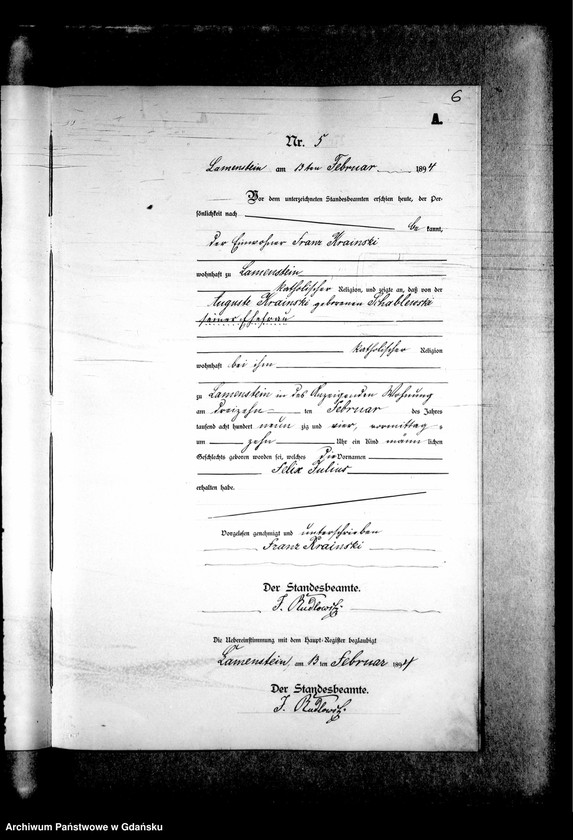 6
A.
Nr. 5
Lamenstein am 13ten Februar 1894
Vor dem unterzeichneten Standesbeamten erschien heute, der Per-
sönlichkeit nach be kannt,
der Einwohner Franz Krainski
wohnhaft zu Lamenstein
katholischer Religion, und zeigte an, daß von der
Auguste Krainski geborenen Schablewski
seiner Ehefrau
katholischer Religion
wohnhaft bei ihm
zu Lamenstein in des Anzeigenden Wohnung
am dreizehn ten Februar des Jahres
tausend acht hundert neun zig und vier, vormittag s
um zehn Uhr ein Kind männ lichen
Geschlechts geboren worden sei, welches die Vornamen
Felix Julius
erhalten habe.
Vorgelesen genehmigt und unterschrieben
Franz Krainski
Der Standesbeamte.
J. Rudlowitz.
Die Uebereinstimmung mit dem Haupt-Register beglaubigt
Lamenstein am 13 ten Februar 1894
Der Standesbeamte.
J. Rudlowitz.
Archiwum Państwowe w Gdańsku